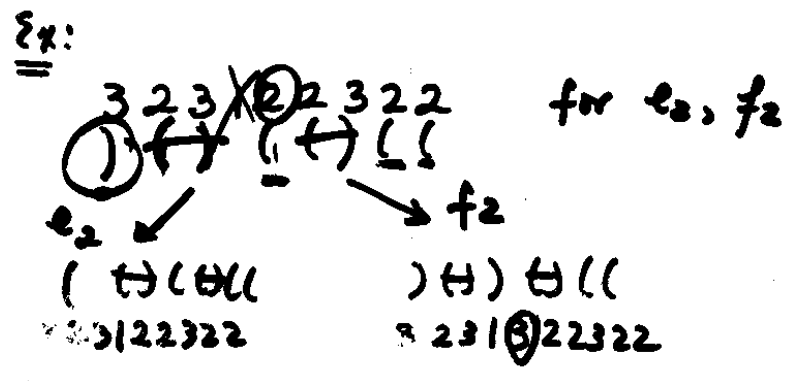 Ex:
3 2 3 2 2 3 2 2 for e2, f2
) ( ) ( ( ) ( (
e2 f2
( ( ) ( ( ) ( ( ) ( ) ) ( ) ( (
3 1 2 2 3 2 2 2 3 1 3 2 2 3 2 2